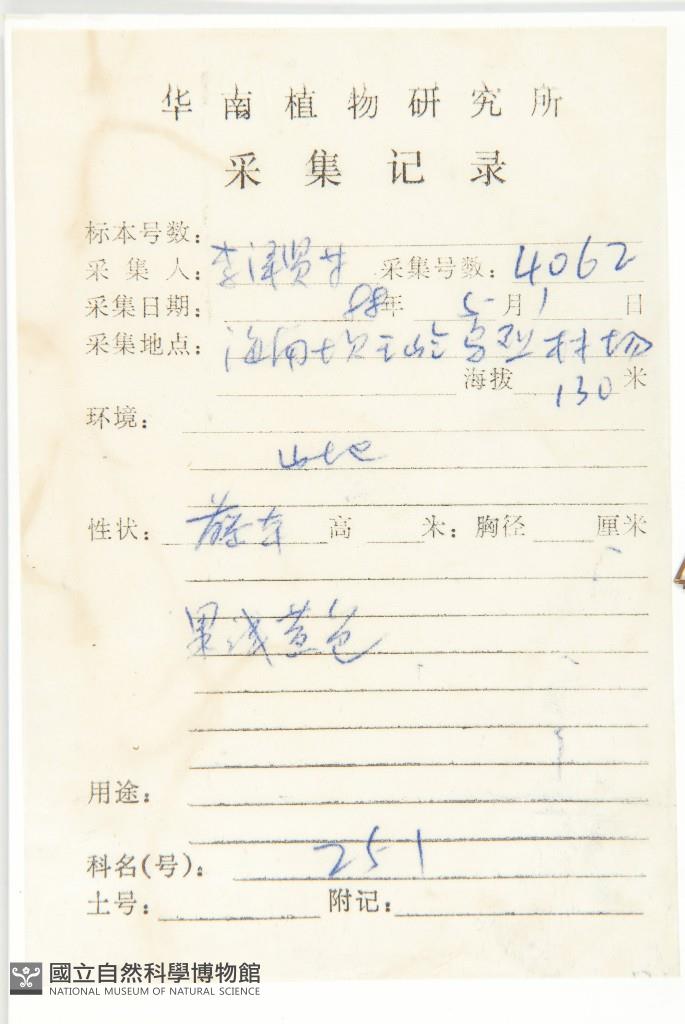 华南植物研究所
采集记录
标本号数:
采集人: 李泽贤 采集号数: 4062
采集日期: 88年 5月1日
采集地点: 海南坝王岭 林场
海拔 130 米
环境:
山地
性状: 藤本 高 米: 胸径 厘米
果浅黄色
用途:
科名(号): 251
土号: 附记:
國立自然科學博物館
NATIONAL MUSEUM OF NATURAL SCIENCE